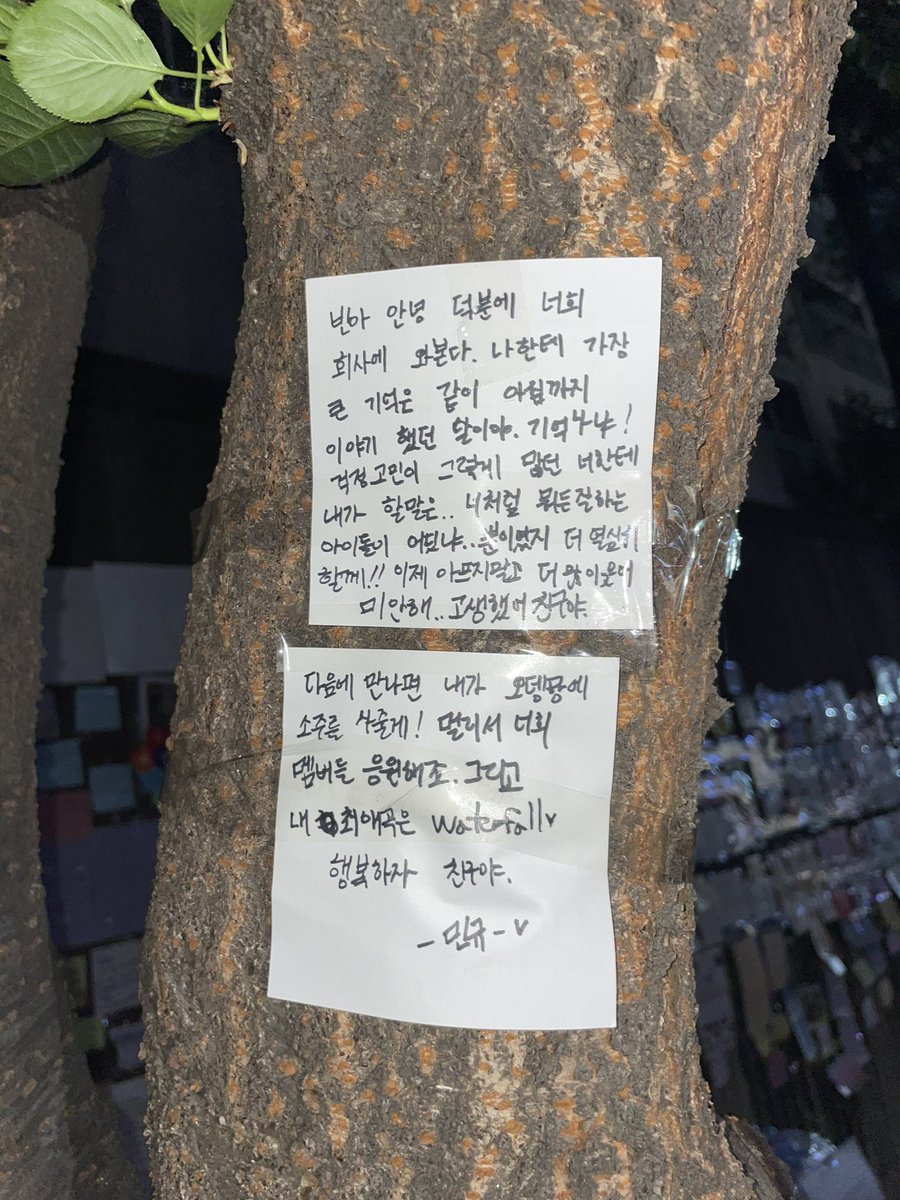 빈아 안녕 덕분에 너희
회사에 와본다. 나한테 가장
큰 기억은 같이 아침까지
이야기 했던 날이야. 기억나냐!
걱정고민이 그렇게 많던 너한테
내가 할말은.. 너처럼 뭐든잘하는
아이돌이 어딨냐.. 뿐이었지 더 열심히
할께!! 이제 아프지말고 더 많이웃어
미안해.. 고생했어 친구야.
다음에 만나면 내가 오뎅탕에
소주를 사줄게! 멀리서 너희
멤버들 응원해조. 그리고
내 최애곡은 waterfall♥
행복하자 친구야.
- 민규 - ♥